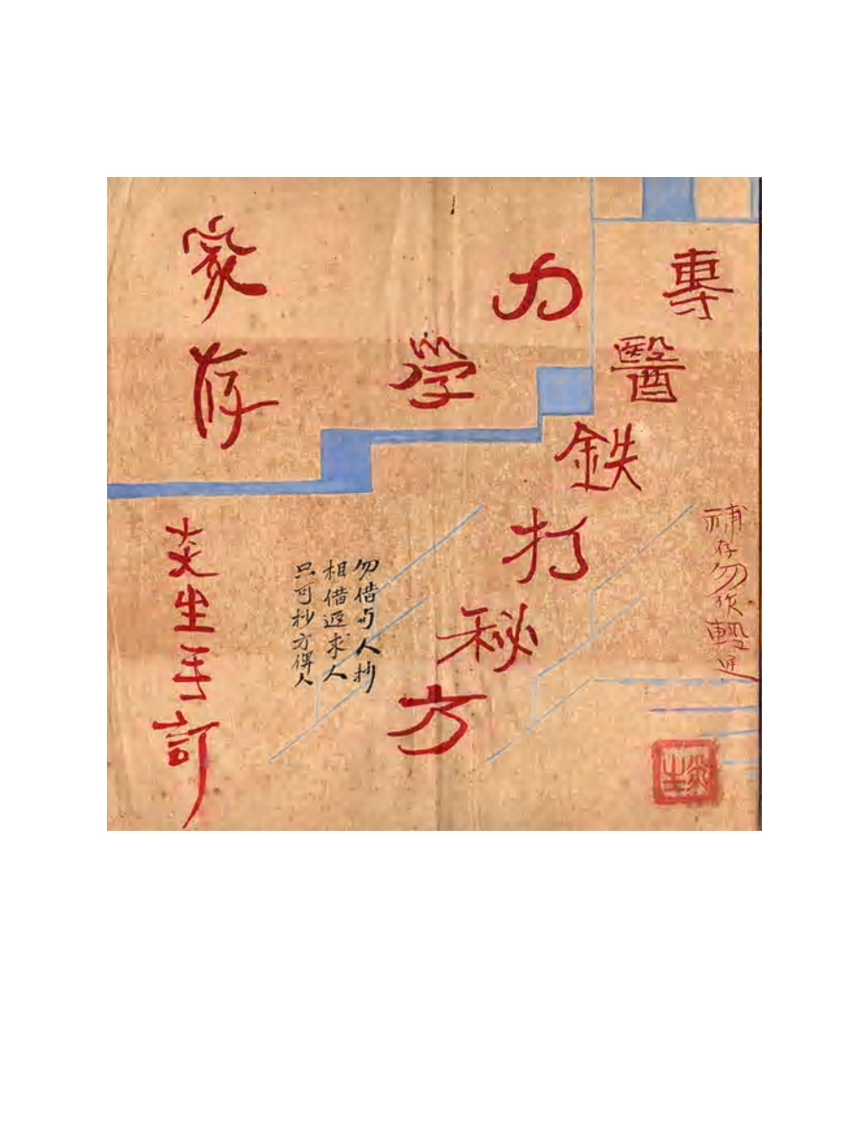 專醫鉄打秘方
力學
家存
炎生手訂
勿借与人抄
相借返求人
只可抄方俾人
補存勿作輕
炎生